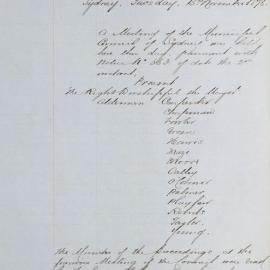 Sydney, Tuesday, 15 November 187
A Meeting of the Municipal
Council of Sydney was held
this day pursuant with
Notice No 363 of date the
instant.
Present
The Right Worshipful the Mayor
Aldermen
Chapman
Fowler
Green
Harris
Moore
Oatley
O'Connor
Palmer
Playfair
Roberts
Taylor
Young
The Minutes of the Proceedings at the
previous Meeting of the Council were read